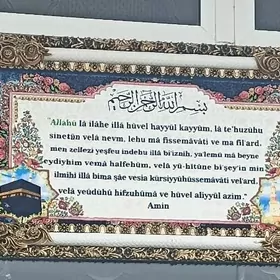 بسم الله الرحمن الرحيم
"Allahü lâ ilâhe illâ hüvel hayyül kayyûm, lâ te'huzühu
sinetün velâ nevm, lehu mâ fissemâvâti ve ma fil'ard,
men zellezi yeşfeu indehu illâ bi'iznih, ya'lemü mâ beyne
eydiyhim vemâ halfehüm, velâ yü-hîtûne bi'şey'in min
ilmihî illâ bima şâe vesia kürsiyyühüssemâvâti vel'ard,
velâ yeûdühû hıfzuhümâ ve hüvel aliyyül azim."
Amin